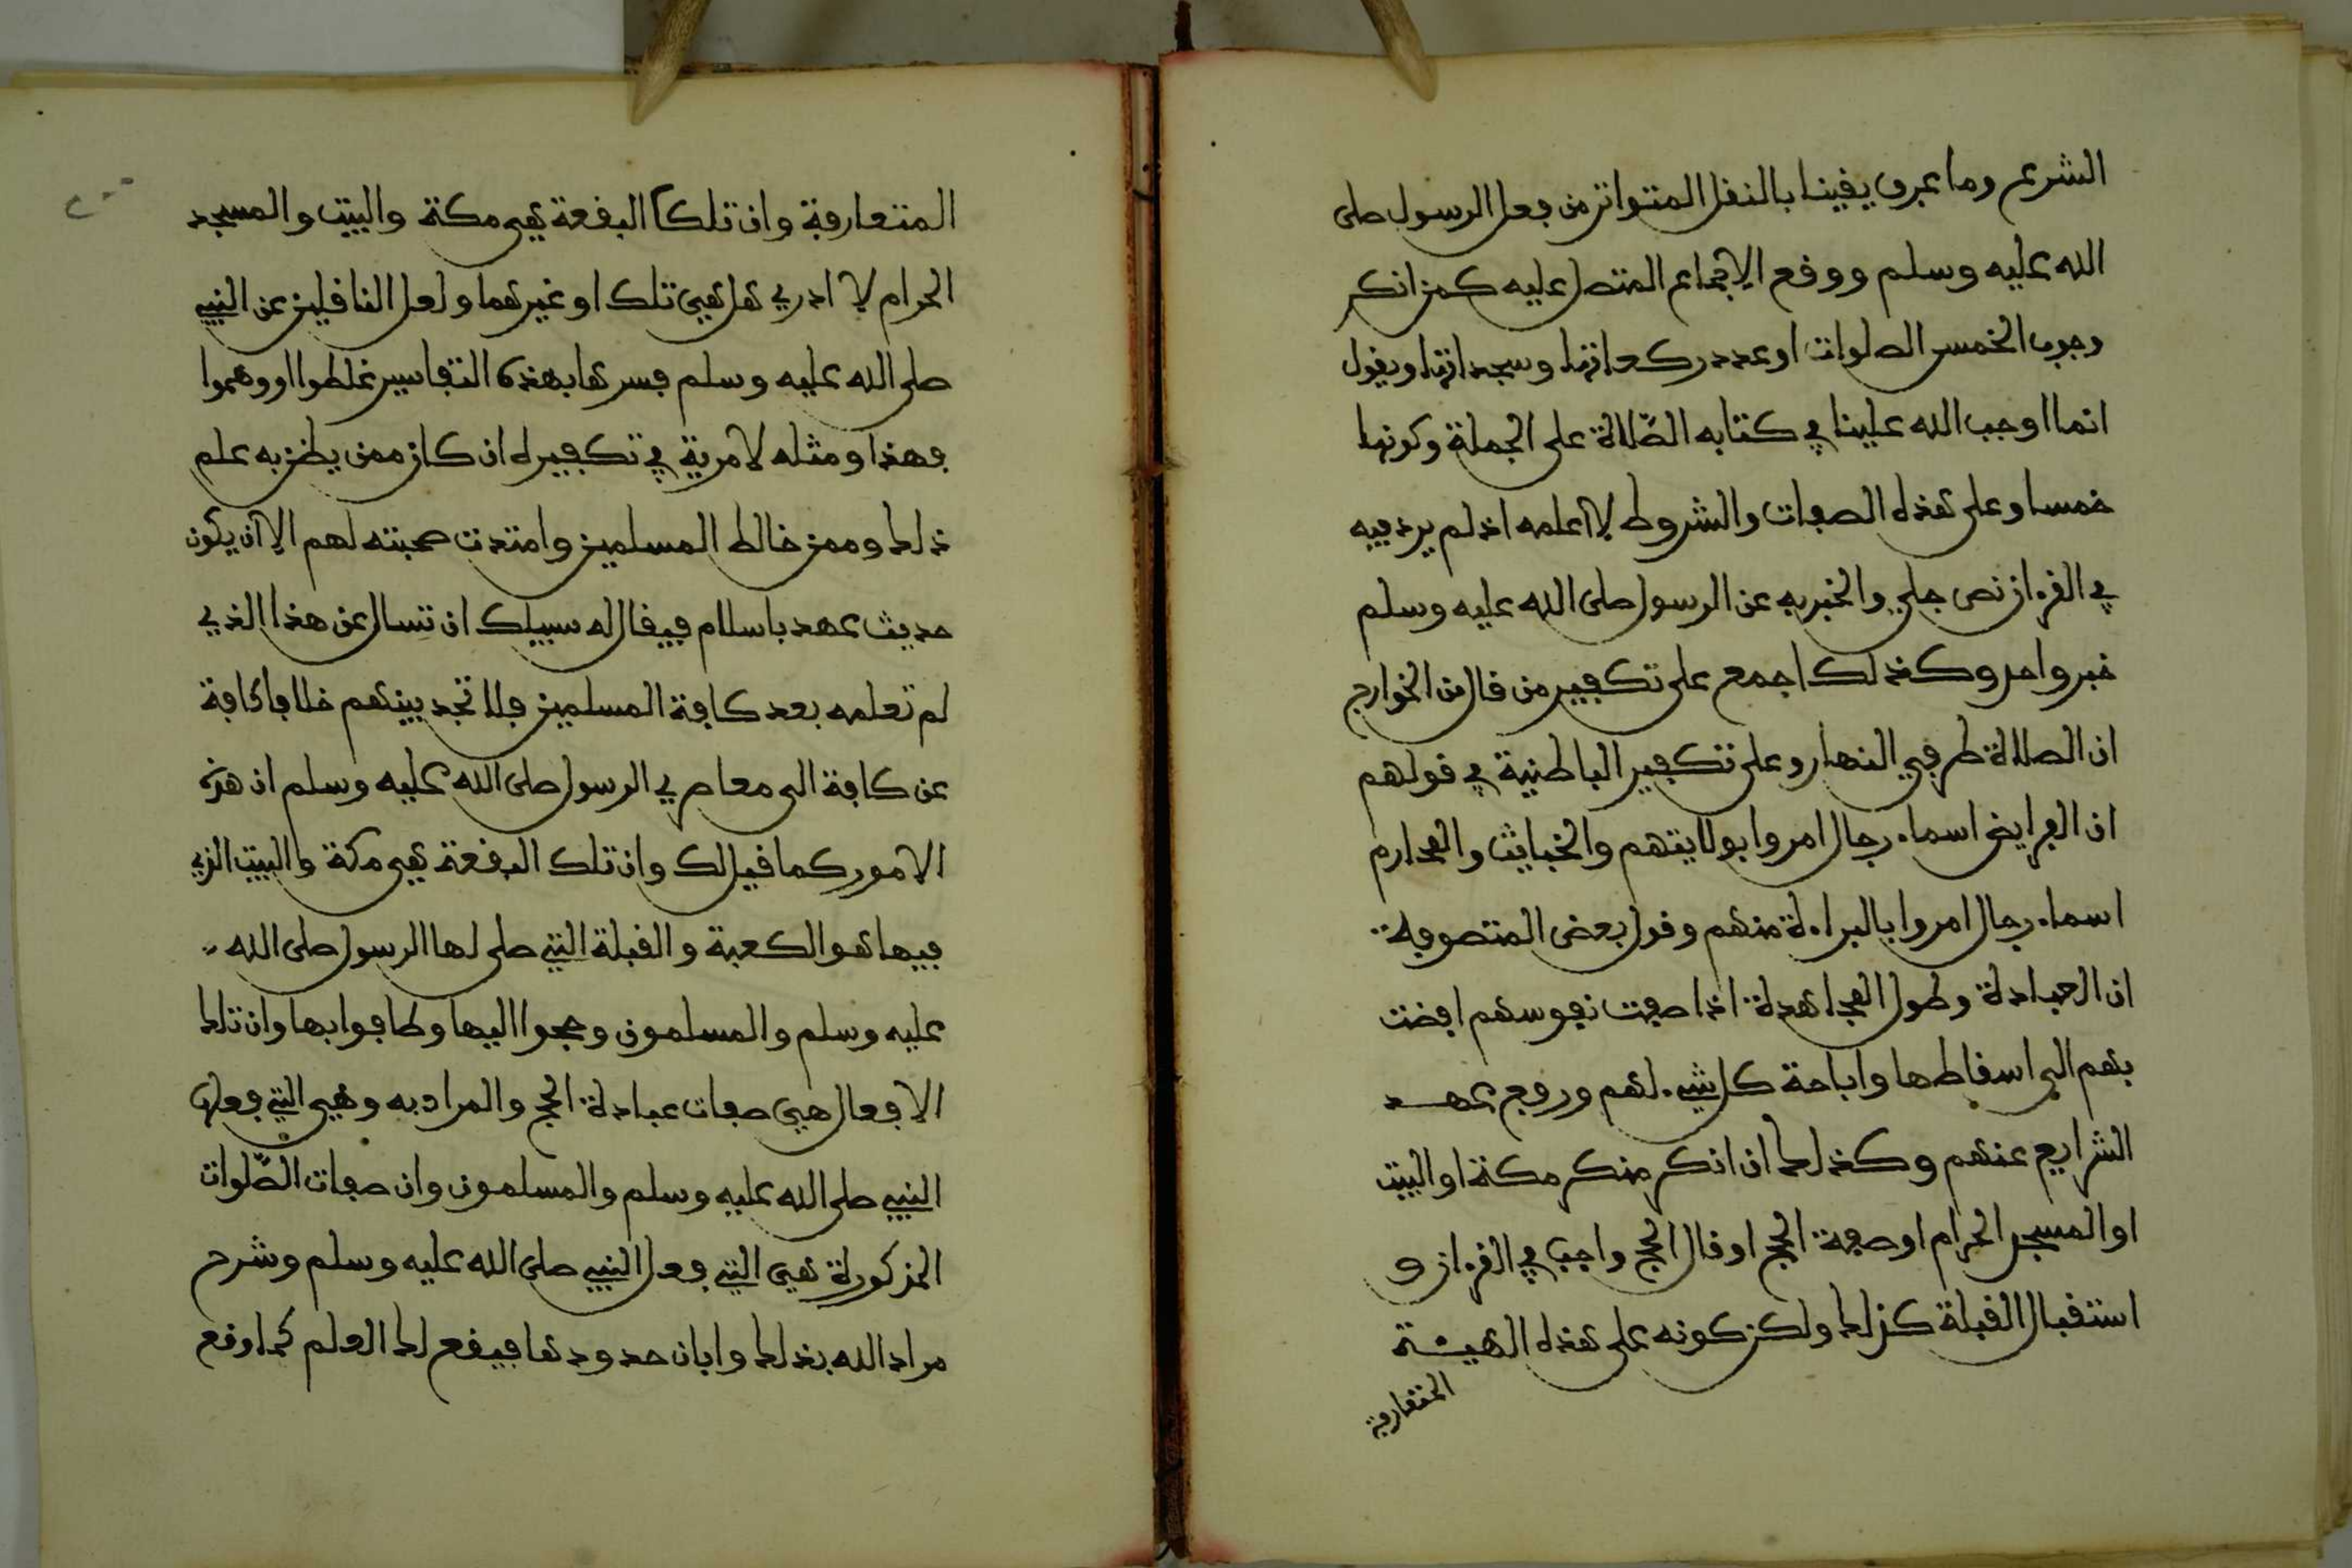 الشرع وما عرف يقينا بالنقل المتواتر من فعل الرسول صلى
الله عليه وسلم ووقع الاجماع المتصل عليه كمن انكر
وجوب الخمس الصلوات او عدد ركعاتها وسجداتها ويقول
انما اوجب الله علينا في كتابه الصّلاة على الجملة وكونها
خمسا وعلى هذه الصفات والشروط لا اعلمه اذ لم يرد فيه
في القرءان نص جلي والخبر به عن الرسول صلى الله عليه وسلم
خبر واحد وكذلك اجمع على تكفير من قال من الخوارج
ان الصلاة طرفي النهار وعلى تكفير الباطنية في قولهم
ان الفرايض اسماء رجال امروا بولايتهم والخبايث والمحارم
اسماء رجال امروا بالبراءة منهم وقول بعض المتصوفة
ان العبادة وطول المجاهدة اذا صفت نفوسهم افضت
بهم الى اسقاطها واباحة كل شيء لهم ورفع عهد
الشرايع عنهم وكذلك ان انكر منكر مكة او البيت
او المسجد الحرام او صفة الحج او قال الحج واجب في القرءان و
استقبال القبلة كذلك ولكن كونه على هذه الهيئة
المتعارفة
المتعارفة وان تلك البقعة هي مكة والبيت والمسجد
الحرام لا ادري هل هي تلك او غيرها ولعل الناقلين عن النبي
صلى الله عليه وسلم فسرها بهذه التفاسير غلطوا او وهموا
فهذا ومثله لا مرية في تكفيره ان كان ممن يظن به علم
ذلك وممن خالط المسلمين وامتدت صحبته لهم الا ان يكون
حديث عهد باسلام فيقال له سبيلك ان تسال عن هذا الذي
لم تعلمه بعد كافة المسلمين فلا تجد بينهم خلافا كافة
عن كافة الى معاصري الرسول صلى الله عليه وسلم ان هذه
الامور كما قيل لك وان تلك البقعة هي مكة والبيت الذي
فيها هو الكعبة والقبلة التي صلى لها الرسول صلى الله
عليه وسلم والمسلمون وحجوا اليها وطافوا بها وان تلك
الافعال هي صفات عبادة الحج والمراد به وهي التي فعلها
النبي صلى الله عليه وسلم والمسلمون وان صفات الصّلوات
المذكورة هي التي فعل النبي صلى الله عليه وسلم وشرح
مراد الله بذلك وابان حدودها فيقع لك العلم كما وقع